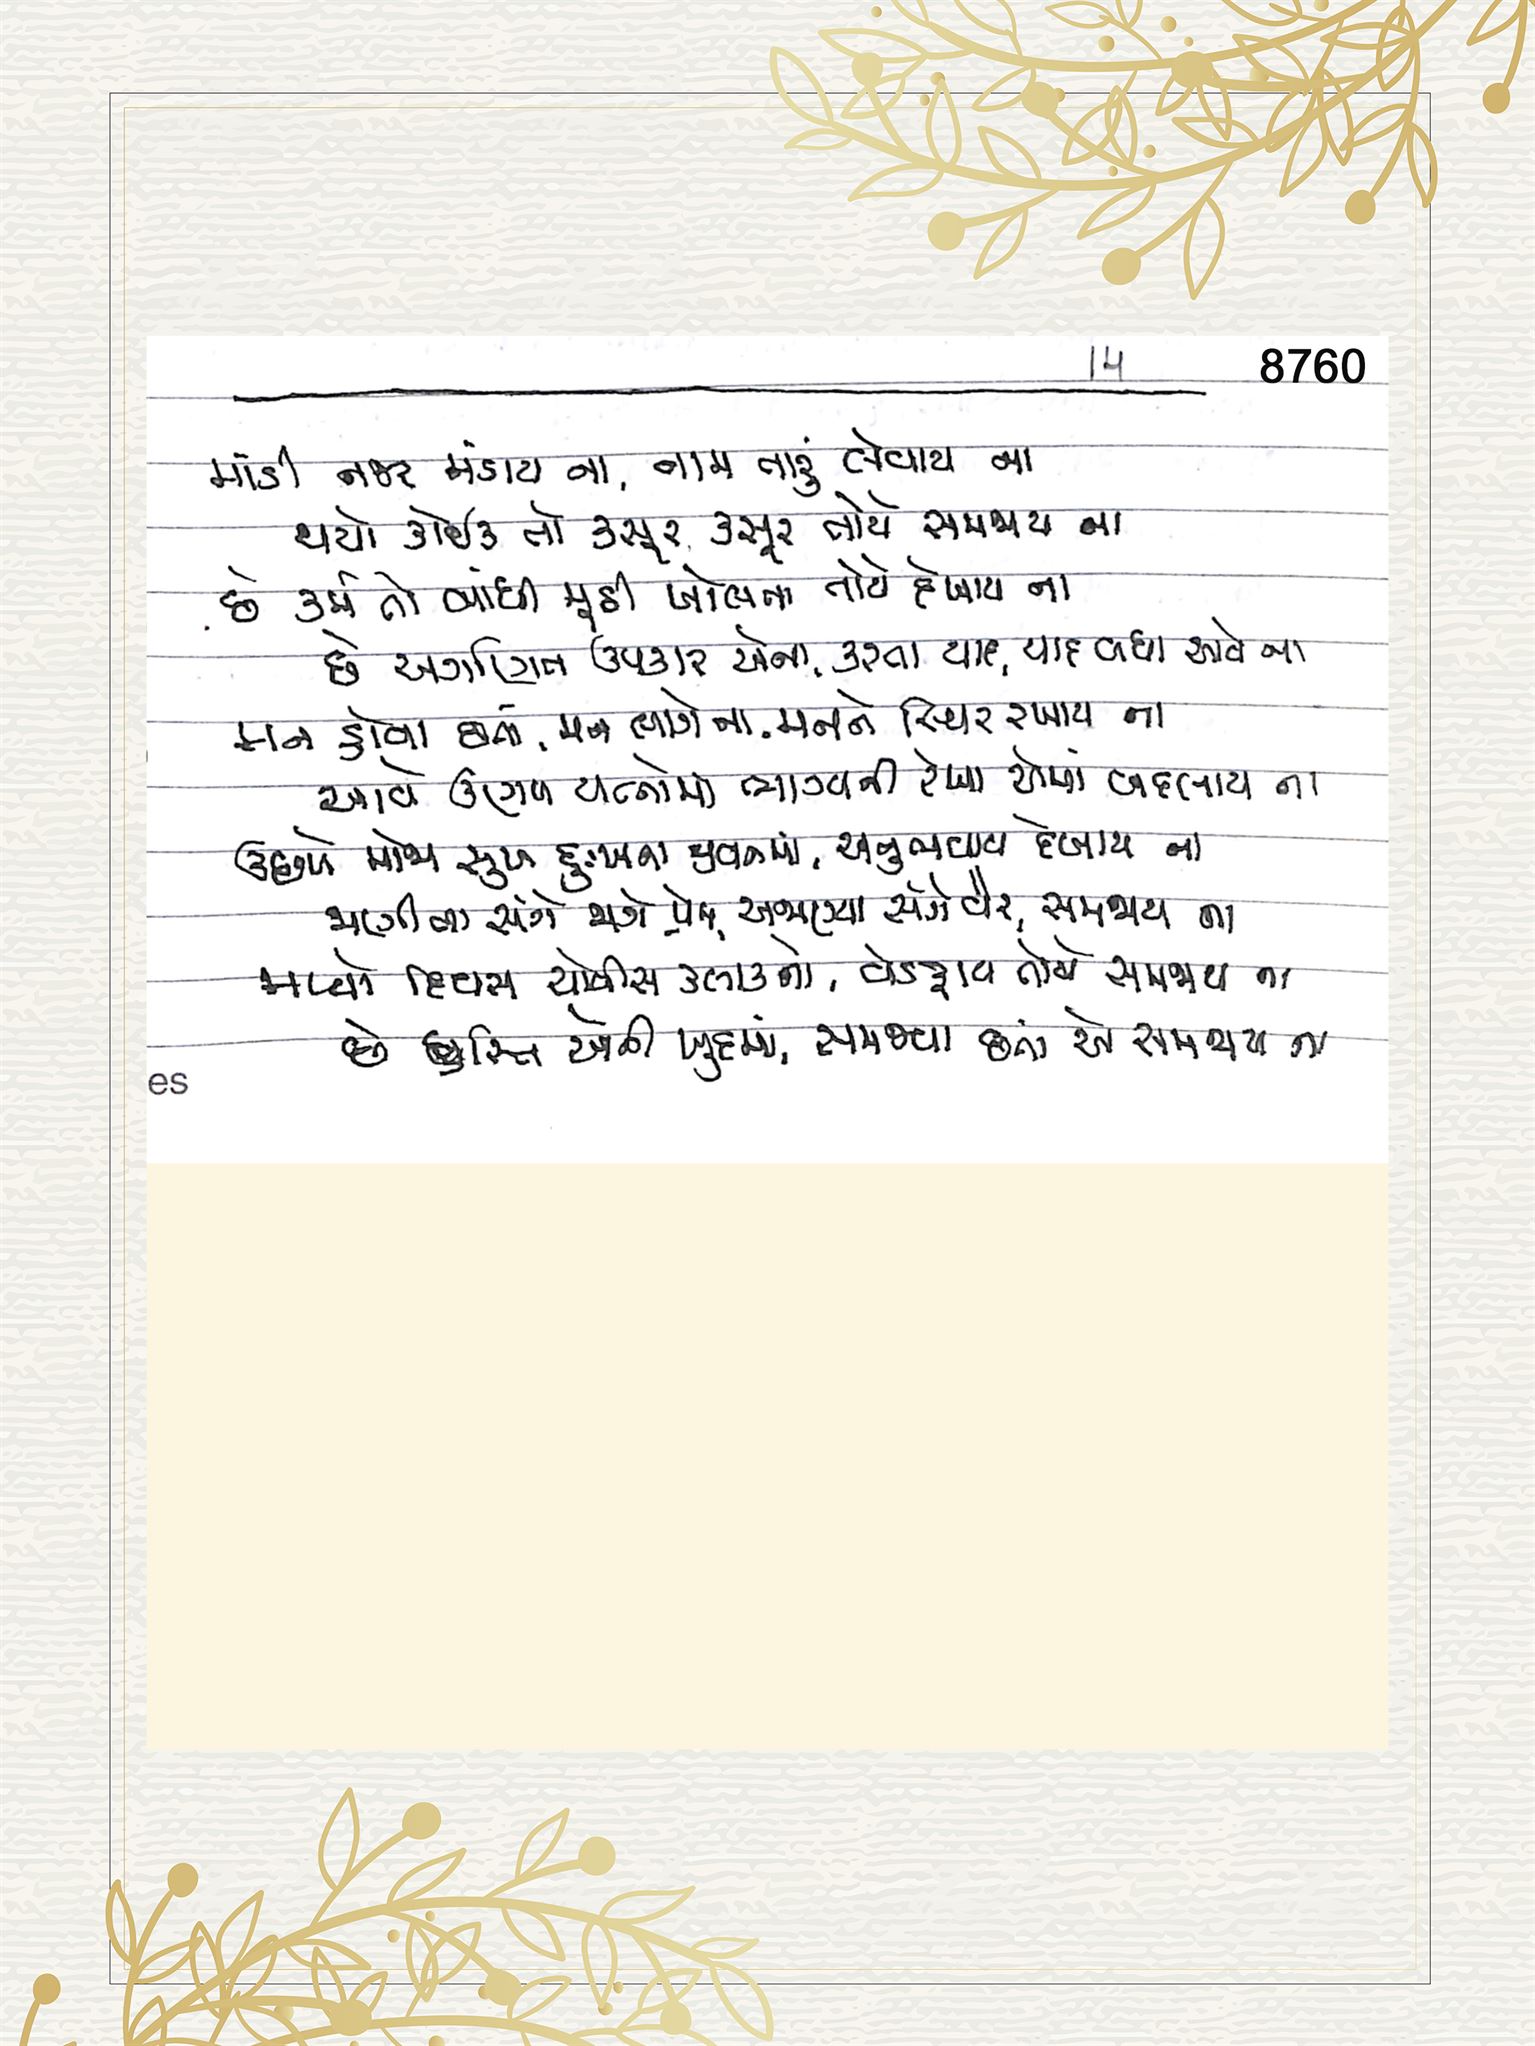 14 8760
માંડી નજર મંડાય ના, નામ તારું લેવાય ના
થયો કોઈક તો કસૂર, કસૂર તોયે સમજાય ના
છે કર્મ તો બાંધી મૂઠી ખોલતા તોયે દેખાય ના
છે અગણિત ઉપકાર એના, કરતા યાદ, યાદ બધા આવે ના
મન હોવા છતાં, મન લાગે ના, મનને સ્થિર રખાય ના
આવે ઉગેળ યત્નોમાં ભાગ્યની રેખા એમાં બદલાય ના
ઉછળે મોજા સુખ દુઃખના જીવનમાં, અનુભવાય દેખાય ના
જાણીતા સંગે જાગે પ્રેમ, અજાણ્યા સંગે વૈર, સમજાય ના
મળ્યો દિવસ ચોવીસ કલાકનો, વેડફાય તોયે સમજાય ના
છે એની ખુદમાં, સમજવા છતાં એ સમજાય ના
es